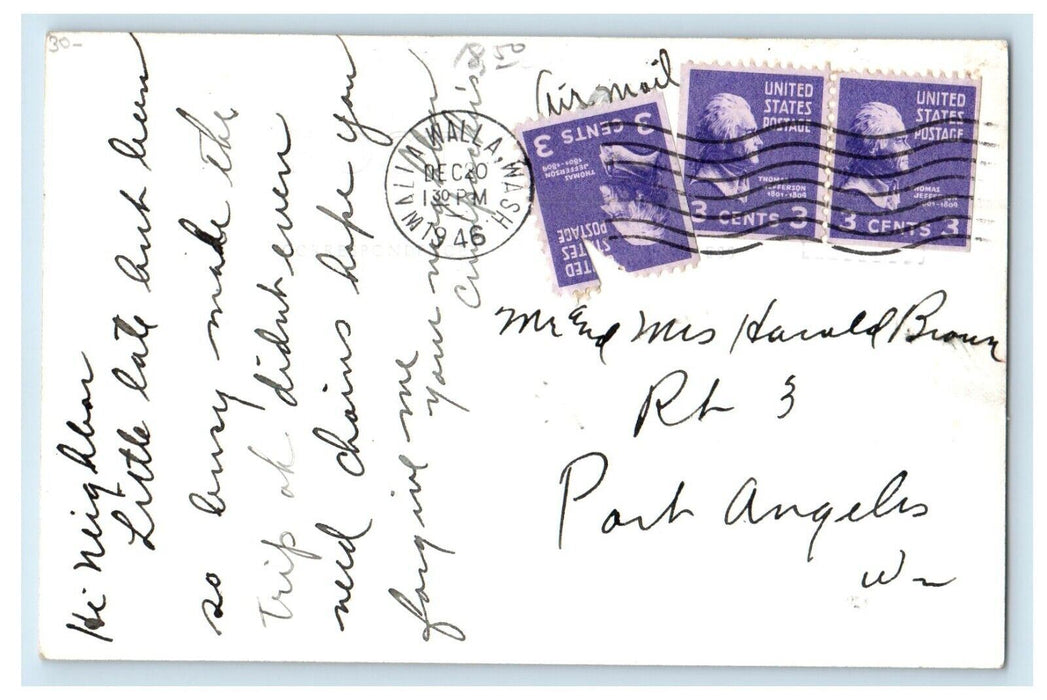 30-
Hi Neighbor
Little late but been
so busy made the
trip ok didnt even
need chains hope you
forgive me
your neighbor
Air mail
WALLA WALLA, WASH
DEC 20
1 30 PM
1946
UNITED
STATES
POSTAGE
THOMAS
JEFFERSON
1801-1809
3 CENTS 3
UNITED
STATES
POSTAGE
THOMAS
JEFFERSON
1801-1809
3 CENTS 3
UNITED
STATES
POSTAGE
THOMAS
JEFFERSON
1801-1809
3 CENTS 3
Mr End Mrs Harold Brown
Rt 3
Port Angeles
Wn